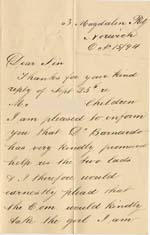 63 Magdalen Rd
Norwich
Oct 15/94
Dear Sir
Thanks for your kind
reply of Sept 25th re
Mc Children
I am pleased to inform
you that Dr Barnardo
has very kindly promised
help us the two lads
& I therefore would
earnestly plead that
the Com. would kindly
take the girl I am